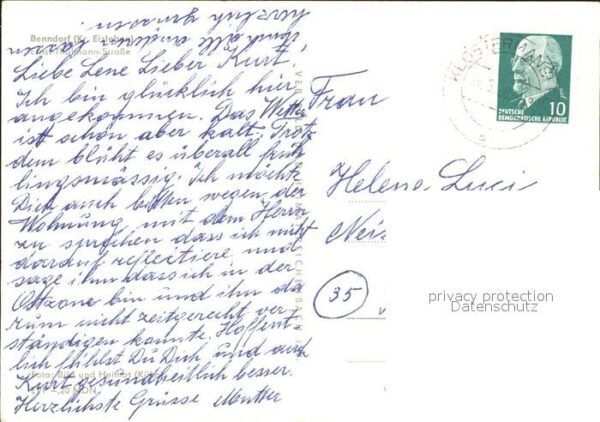 Benndorf (Kr. Eisleben)
Ernst-Thälmann-Straße
Liebe Lene Lieber Kurt!
Ich bin glücklich hier
angekommen. Das Wetter
ist schön aber kalt. Trotz
dem blüht es überall früh
lingsmässig. Ich möchte
Dich auch bitten wegen der
Wohnung mit dem Herrn
zu sprechen dass ich nicht
darauf reflectiere und
sage ihm dass ich in der
Ostzone bin und ihn da
rum nicht zeitgerecht ver
ständigen konnte. Hoffent
lich fühlst Du Dich und auch
Kurt gesundheitlich besser.
Herzlichste Grüsse Mutter
Foto: Bild und Heimat
Frau
Helena Luci
Neis
35
KLOSTERMANSFELD
10
DEUTSCHE
DEMOKRATISCHE REPUBLIK
privacy protection
Datenschutz